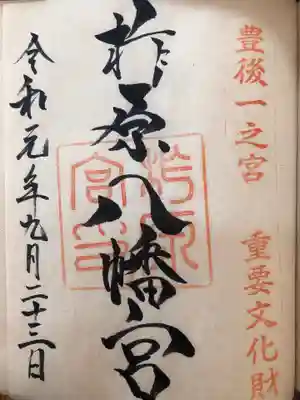 豊後一之宮
重要文化財
柞原八幡宮
令和元年九月二十三日